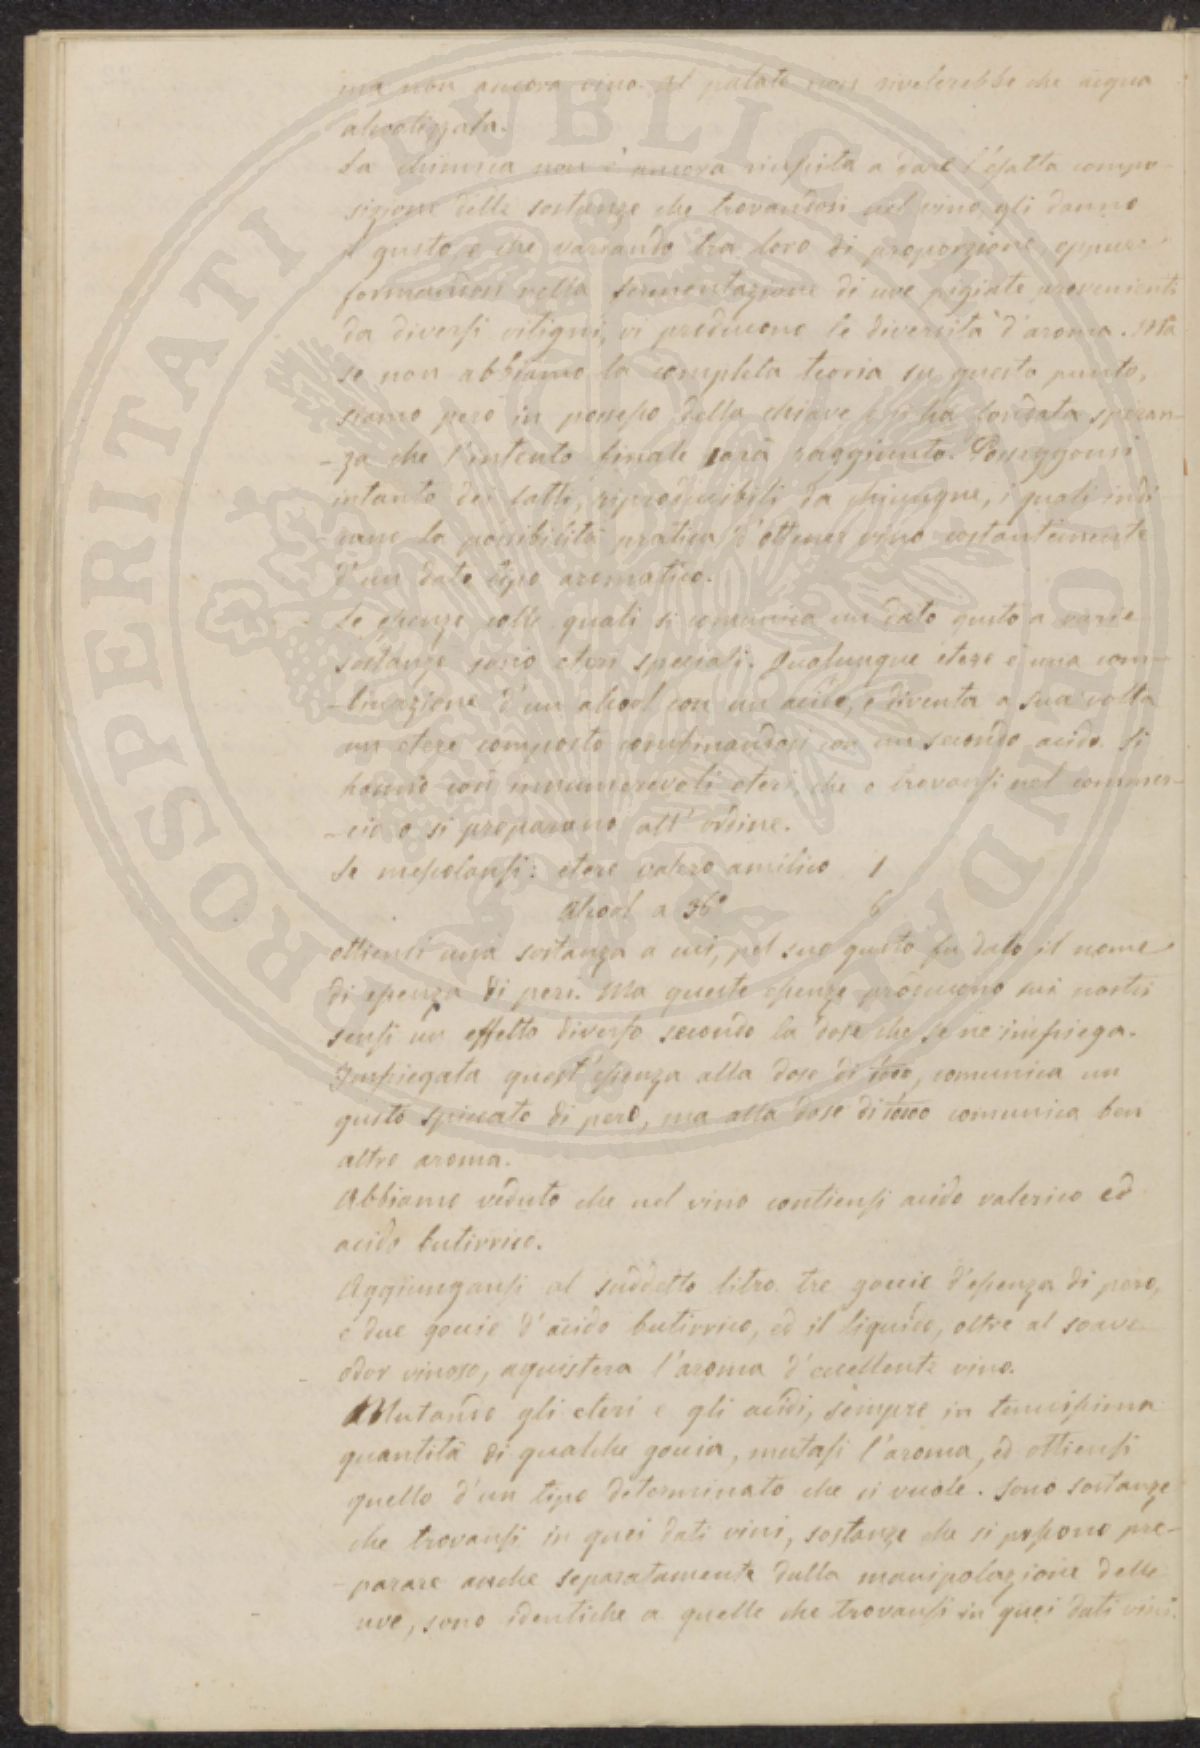 ma non ancora vino. Al palato non rivelerebbe che acqua
alcoolizzata.
La chimica non è ancora riuscita a dare l'esatta compo-
sizione delle sostanze che trovandosi nel vino gli danno
il gusto, e che variando tra loro di proporzione, oppure
formandosi nella fermentazione di uve pigiate provenienti
da diversi vitigni, vi producono le diversità d'aroma. Ma
se non abbiamo la completa teoria su questo punto,
siamo però in possesso della chiave e si ha fondata speran-
-za che l'intento finale sarà raggiunto. Posseggonsi
intanto dei fatti, riproducibili da chiunque, i quali indi-
-cano la possibilità pratica d'ottener vino costantemente
d'un dato tipo aromatico.
Le essenze colle quali si comunica un dato gusto a varie
sostanze sono eteri speciali. Qualunque etere è una com-
-binazione d'un alcool con un acido, e diventa a sua volta
un etere composto combinandosi con un secondo acido. Si
hanno così innumerevoli eteri che o trovansi nel commer-
-cio o si preparano all'ordine.
Se mescolansi: etere valero amilico 1
Alcool a 36° 6
ottiensi una sostanza a cui, pel suo gusto fu dato il nome
di essenza di pere. Ma queste essenze producono sui nostri
sensi un effetto diverso secondo la dose che se ne impiega.
Impiegata quest'essenza alla dose di comunica un
gusto spiccato di pero, ma alla dose di comunica ben
altro aroma.
Abbiamo veduto che nel vino contiensi acido valerico ed
acido butirrico.
Aggiungansi al suddetto litro tre goccie d'essenza di pero,
e due goccie d'acido butirrico, ed il liquido, oltre al soave
odor vinoso, aquistera l'aroma d'eccellente vino.
Mutando gli eteri e gli acidi, sempre in tenuissima
quantità di qualche goccia, mutasi l'aroma, ed ottiensi
quello d'un tipo determinato che si vuole. Sono sostanze
che trovansi in quei dati vini, sostanze che si possono pre-
-parare anche separatamente dalla manipolazione delle
uve, sono identiche a quelle che trovansi in quei dati vini.
PROSPERITATI PUBLICAE AUGENDAE